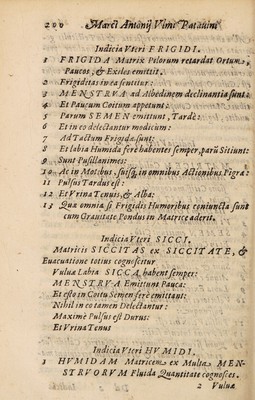 200 Marci Antonij Vlmi Patauini
Indicia Vteri FRIGIDI.
1 FRIGIDA Matrix Pilorum retardat Ortum,
Paucos, & Exiles emittit.
2 Frigiditas in ea sentitur:
3 MENSTRVA ad Albedinem declinantia sunt:
4 Et Paucum Coitum appetunt:
5 Parum SEMEN emittunt, Tardè:
6 Et in eo delectantur modicum:
7 Ad Tactum Frigidæ sunt:
8 Et labia Humida ferè habentes semper, parū Sitiunt:
9 Sunt Pusillanimes:
10 Ac in Motibus, suisq́; in omnibus Actionibus Pigræ:
11 Pulsus Tardus est:
12 Et Vrina Tenuis, & Alba:
13 Quæ omnia si Frigidis Humoribus coniuncta sunt
cum Grauitate Pondus in Matrice aderit.
Indicia Vteri SICCI.
Matricis SICCITAS ex SICCITATE, &
Euacuatione totius cognoscitur
Vuluæ Labia SICCA habent semper:
MENSTRVA Emittunt Pauca:
Et esto in Coitu Semen ferè emittant:
Nihil in eo tamen Delectantur:
Maximè Pulsus est Durus:
Et Vrina Tenuis
Indicia Vteri HVMIDI.
1 HVMIDAM Matricem ex Multa MEN-
STRVORVM Fluida Quantitate cognosces.
2 Vuluæ